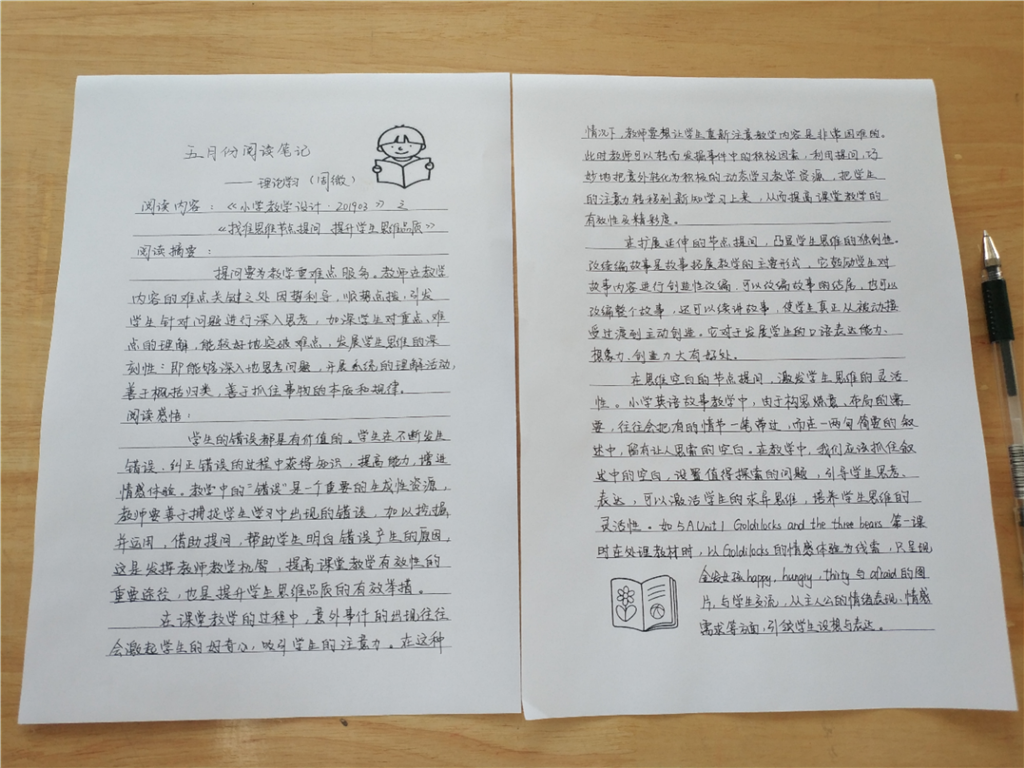 五月份阅读笔记
—— 理论学习（周微）
阅读内容：《小学教学设计·201903》之
《找准思维节点提问 提升学生思维品质》
阅读摘要：
提问要为教学重难点服务。教师在教学
内容的难点关键之处因势利导，顺势点拨，引发
学生针对问题进行深入思考，加深学生对重点、难
点的理解，能较好地突破难点，发展学生思维的深
刻性：即能够深入地思考问题，开展系统的理解活动，
善于概括归类，善于抓住事物的本质和规律。
阅读感悟：
学生的错误都是有价值的。学生在不断发生
错误、纠正错误的过程中获得知识，提高能力，增进
情感体验。教学中的“错误”是一个重要的生成性资源，
教师要善于捕捉学生学习中出现的错误，加以挖掘
并运用，借助提问，帮助学生明白错误产生的原因，
这是发挥教师教学机智，提高课堂教学有效性的
重要途径，也是提升学生思维品质的有效举措。
在课堂教学的过程中，意外事件的出现往往
会激起学生的好奇心，吸引学生的注意力。在这种
情况下，教师要想让学生重新注意教学内容是非常困难的。
此时教师可以转而发掘事件中的积极因素，利用提问，巧
妙地把意外转化为积极的动态学习教学资源，把学生
的注意力转移到新知学习上来，从而提高课堂教学的
有效性及精彩度。
在扩展延伸的节点提问，凸显学生思维的独创性。
改续编故事是故事拓展教学的主要形式，它鼓励学生对
故事内容进行创造性改编，可以改编故事的结尾，也可以
改编整个故事，还可以续讲故事，使学生真正从被动接
受过渡到主动创造。它对于发展学生的口语表达能力、
想象力、创造力大有好处。
在思维空白的节点提问，激发学生思维的灵活
性。小学英语故事教学中，由于构思精意、布局的需
要，往往会把有的情节一笔带过，而在一两句简要的叙
述中，留有让人思索的空白。在教学中，我们应该抓住叙
述中的空白，设置值得探索的问题，引导学生思考、
表达，可以激活学生的求异思维，培养学生思维的
灵活性。如5A Unit 1 Goldilocks and the three bears 第一课
时在处理教材时，以Goldilocks的情感体验为线索，只呈现
金发女孩happy, hungry, thirty与afraid的图
片，与学生交流，从主人公的情绪表现、情感
需求等方面，引领学生设想与表达。